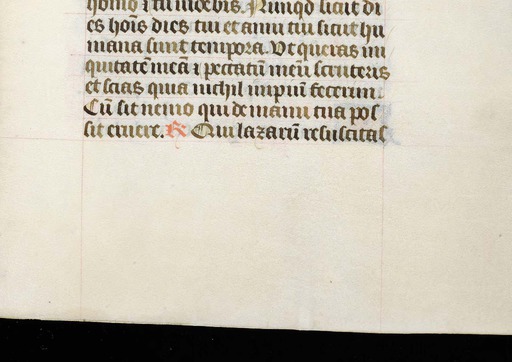 homo ⁊ tu videbis. Nunqd sicut di
es hoīs dies tui et anni tui sicut hu
mana sunt tempora. Ut queras ini
quitatē meā ⁊ peccatum meū scruteris
et scias quia nichil impiū fecerim.
Cū sit nemo qui de manu tua pos
sit eruere. ℞ Qui lazarū resuscitas